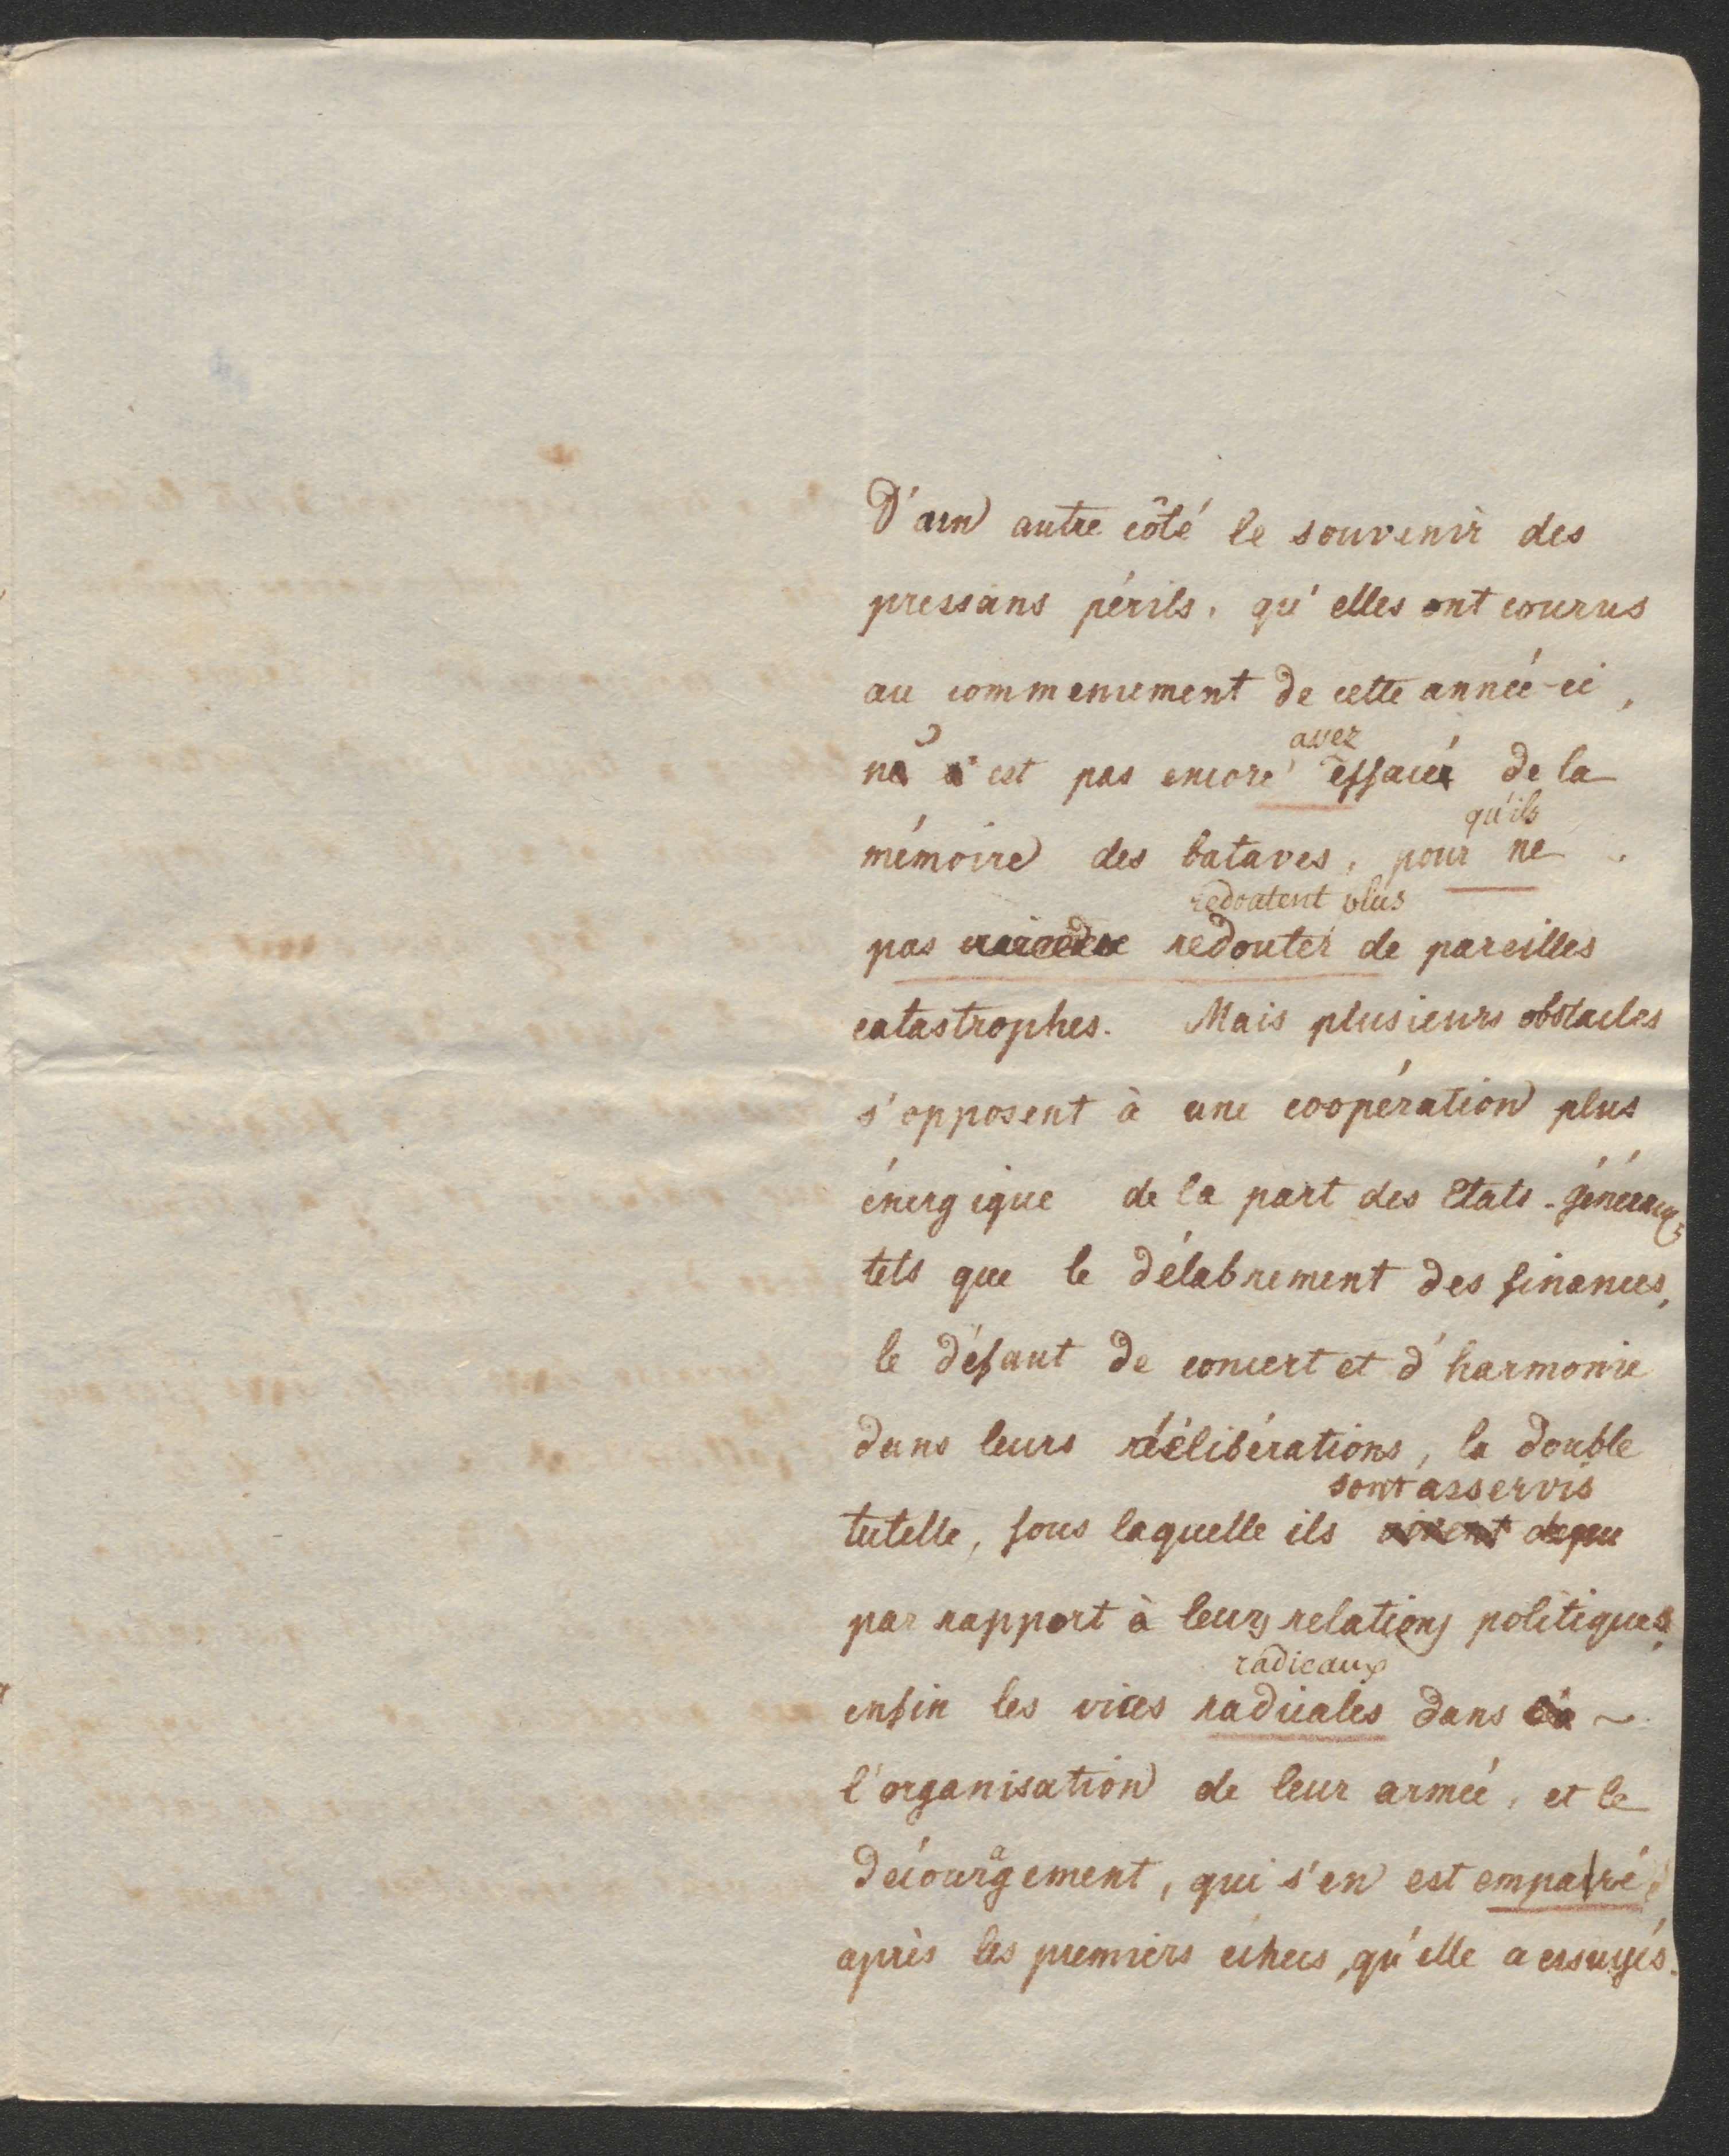 D'un autre côté le souvenir des
pressans périls, qu'elles ont courus
au commencement de cette année-ci,
assez
n'est pas encore effacé de la
qu'ils
mémoire des bataves, pour ne
redoutent plus
pas redouter de pareilles
catastrophes. Mais plusieurs obstacles
s'opposent à une coopération plus
énergique de la part des Etats-généraux,
tels que le délabrement des finances,
le défaut de concert et d'harmonie
dans leurs délibérations, la double
sont asservis
tutelle, sous laquelle ils
par rapport à leurs relations politiques,
radicaux
enfin les vices radicales dans
l'organisation de leur armée, et le
découragement, qui s'en est emparé
après les premiers échecs, qu'elle a essuyés.